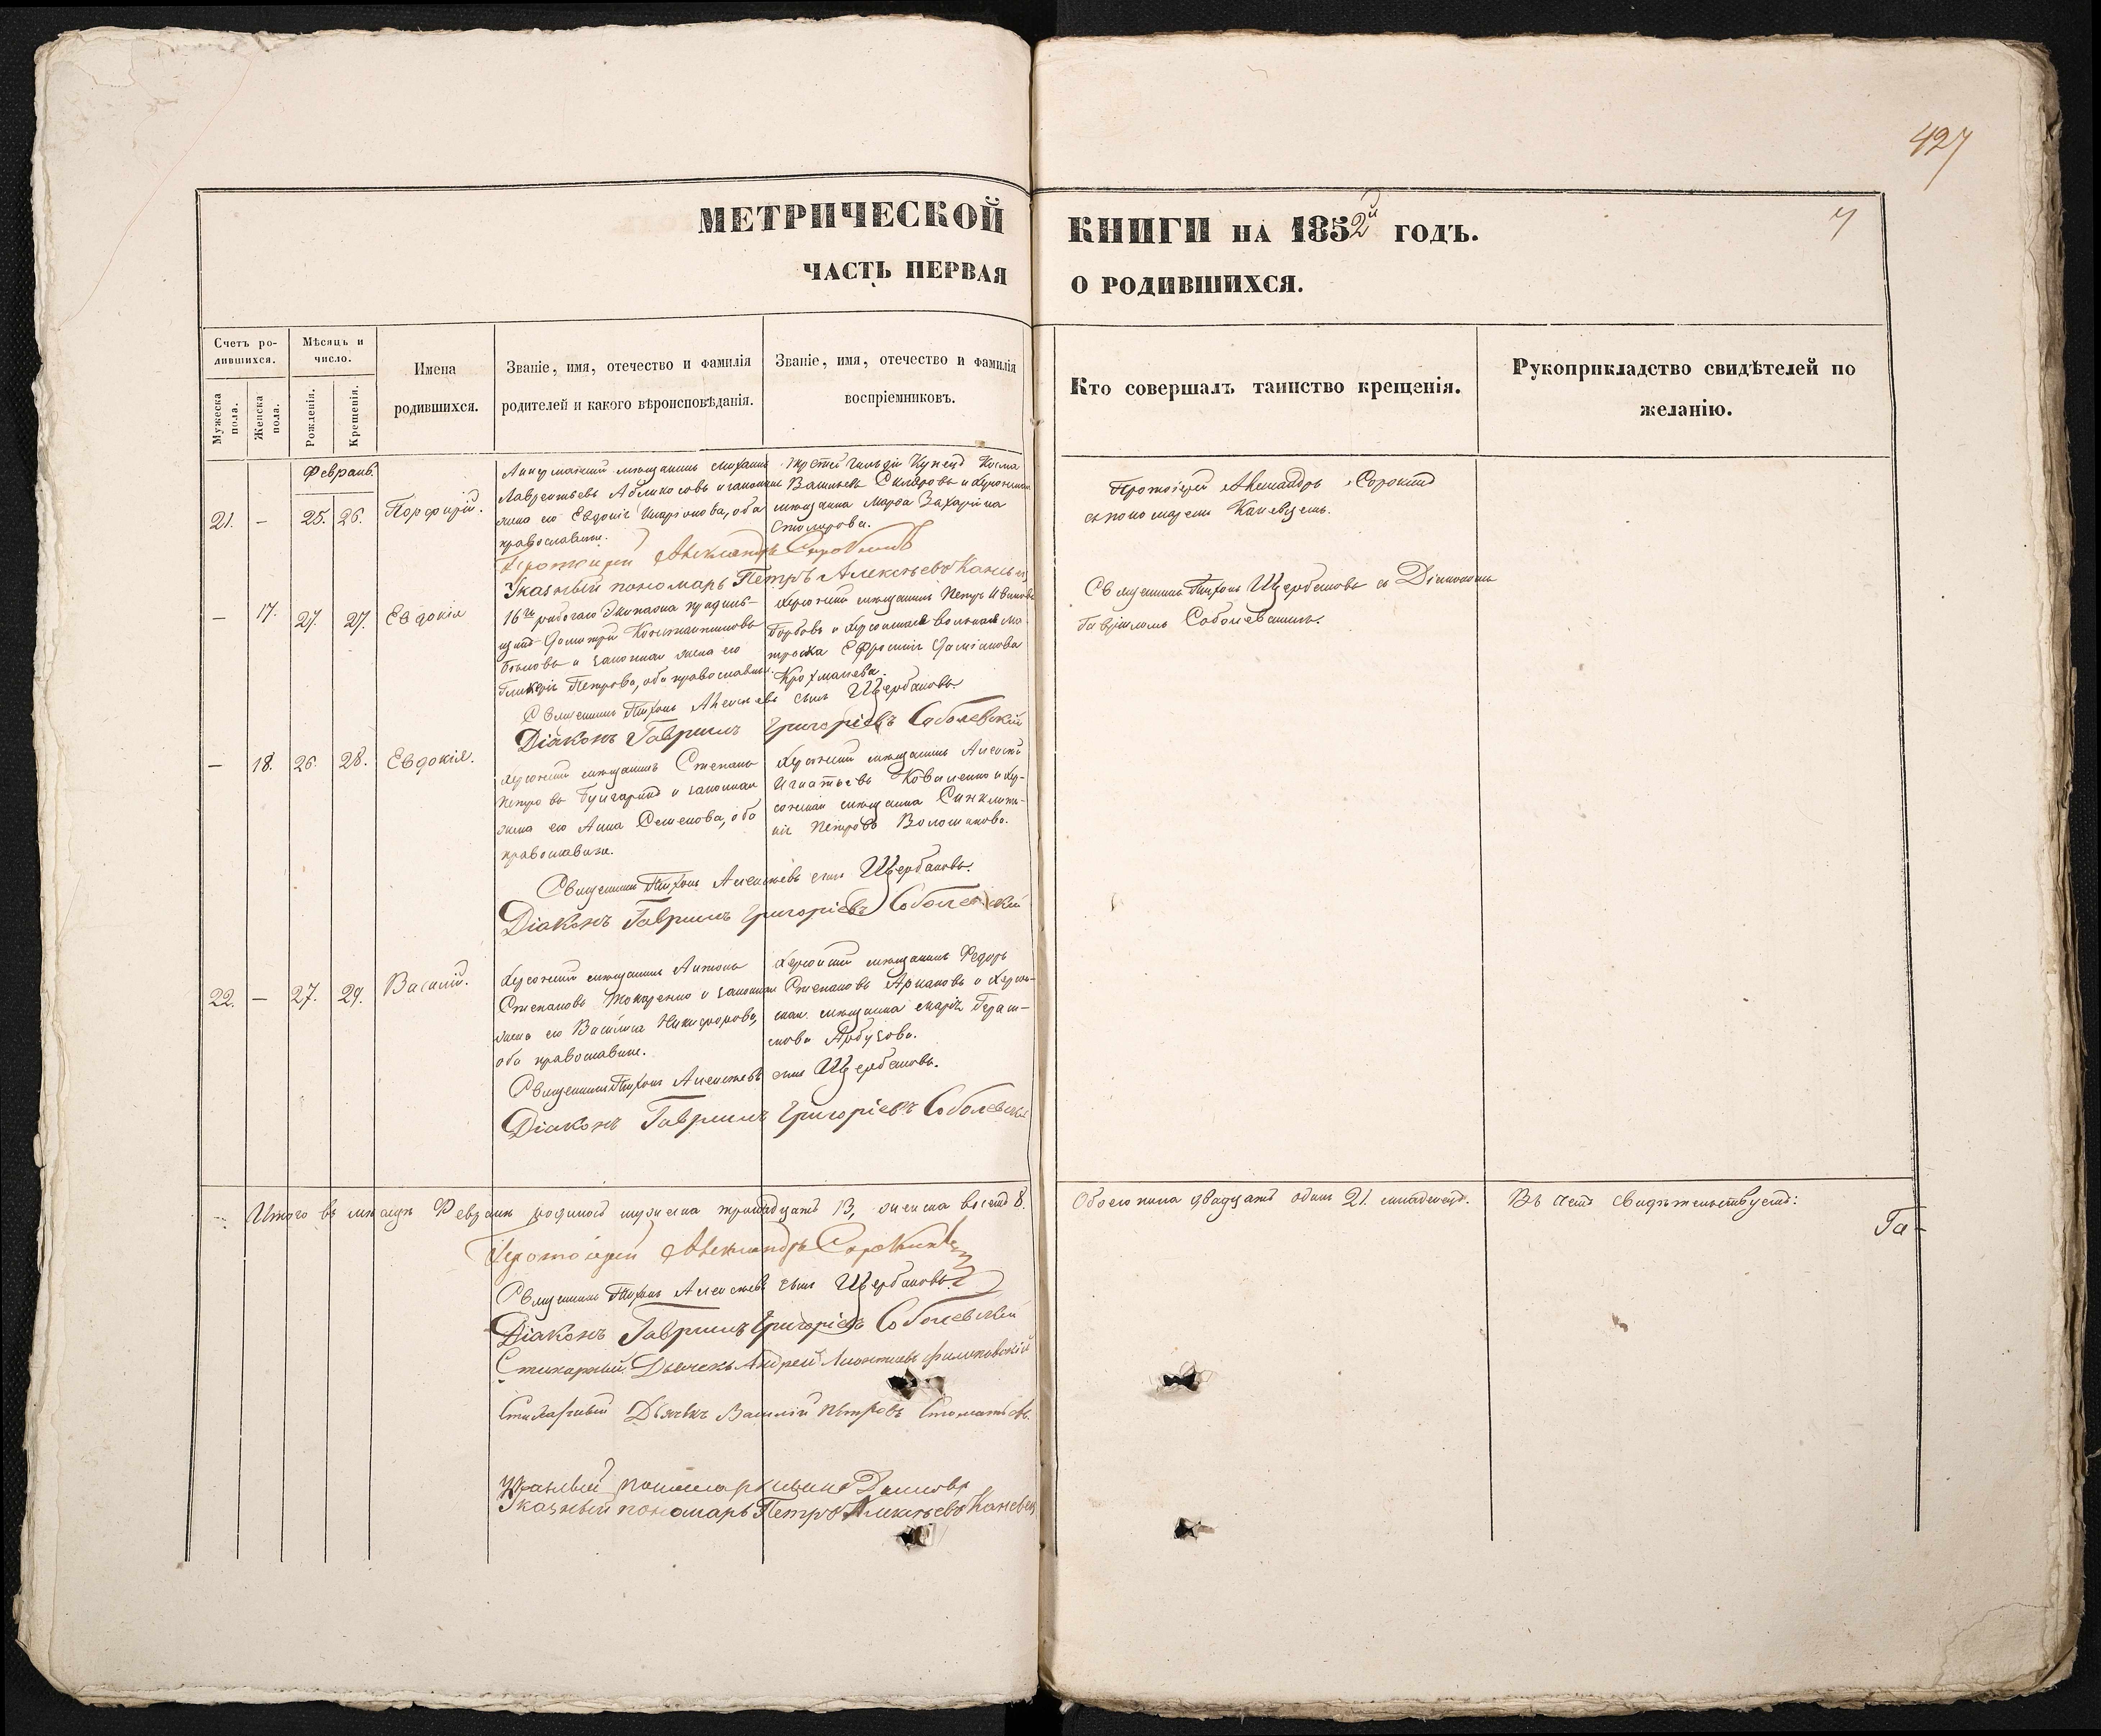 427
МЕТРИЧЕСКОЙ КНИГИ НА 1852й ГОДЪ.
7
ЧАСТЬ ПЕРВАЯ О РОДИВШИХСЯ.
Счетъ ро-
дившихся.
Мужеска пола.
Женска пола.
Мѣсяцъ и
число.
Рожденія.
Крещенія.
Имена
родившихся.
Званіе, имя, отечество и фамилія
родителей и какого вѣроисповѣданія.
Званіе, имя, отечество и фамилія
воспріемниковъ.
Кто совершалъ таинство крещенія.
Рукоприкладство свидѣтелей по
желанію.
Февраль.
21. — 25. 26. Порфирій.
мѣщанинъ Михаилъ
Лаврентьевъ и законная
жена его Евдокія Иларіонова, оба
православные.
третей гильдіи Купецъ Косма
Васильевъ Скляровъ и Херсонская
мѣщанка Марѳа Захаріина
Столярова.
Протоіерей Александръ Сорокинъ
съ пономаремъ Каневцемъ.
Протоіерей Александръ Сорокинъ
Указный пономарь Петръ Алексѣевъ Каневец
— 17. 27. 27. Евдокія
16го рабочаго Экипажа
Димитрій Константиновъ
и законная жена его
Гликерія Петрова, оба православные.
Херсонскій мѣщанинъ Петръ Ивановъ
Горбовъ и Херсонская вольная ма-
троска Ефросинія Даміанова
Крохмалева.
Священникъ Тихонъ Щербановъ съ Діакономъ
Гавріиломъ Соболевскимъ.
Священникъ Тихонъ Алексѣевъ сынъ Щербановъ.
Діаконъ Гавриилъ Григоріевъ Соболевскій
— 18. 26. 28. Евдокія.
Херсонскій мѣщанинъ Стефанъ
Петровъ Булгаринъ и законная
жена его Анна Семенова, оба
православные.
Херсонскій мѣщанинъ Алексѣй
Игнатьевъ Коваленко и Хер-
сонская мѣщанка Синклити-
кія Петрова Волошинова.
Священникъ Тихонъ Алексѣевъ сынъ Щербановъ.
Діаконъ Гавриилъ Григоріевъ Соболевскій
22. — 27. 29. Василій.
Херсонскій мѣщанинъ Антонъ
Степановъ Токаренко и законная
жена его Василиса Никифорова,
оба православные.
Херсонскій мѣщанинъ Ѳедоръ
Степановъ Аркановъ и Херсон-
ская мѣщанка Марія Гераси-
мова Арбузова.
Священникъ Тихонъ Алексѣевъ сынъ Щербановъ.
Діаконъ Гавриилъ Григоріевъ Соболевскій
Итого въ мѣсяцѣ Февралѣ родилось мужеска тринадцать 13, женска восемь 8.
Обоего пола двадцать одинъ 21. младенецъ.
Въ чемъ свидѣтельствуемъ:
Га-
Протоіерей Александръ Сорокинъ
Священникъ Тихонъ Алексѣевъ сынъ Щербановъ.
Діаконъ Гавриилъ Григоріевъ Соболевскій
Стихарный Дьячекъ Андрей Леонтьевъ Филиповскій
Стихарный Дьячекъ Василій Петровъ
Указный пономарь
Указный пономарь Петръ Алексѣевъ Каневец